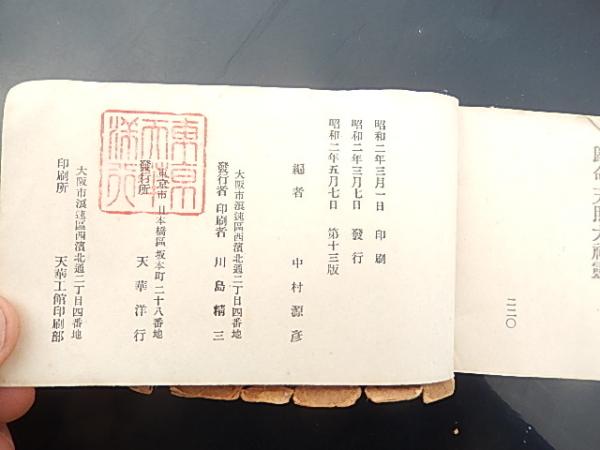 昭和二年三月一日　印刷
昭和二年三月七日　發行
昭和二年五月七日　第十三版
編者　中村源彦
大阪市浪速區西濱北通二丁目四番地
發行者印刷者　川島精三
東京市日本橋區坂本町二十八番地
發行所　天華洋行
大阪市浪速區西濱北通二丁目四番地
印刷所　天華工館印刷部
東京天華洋行
二二〇